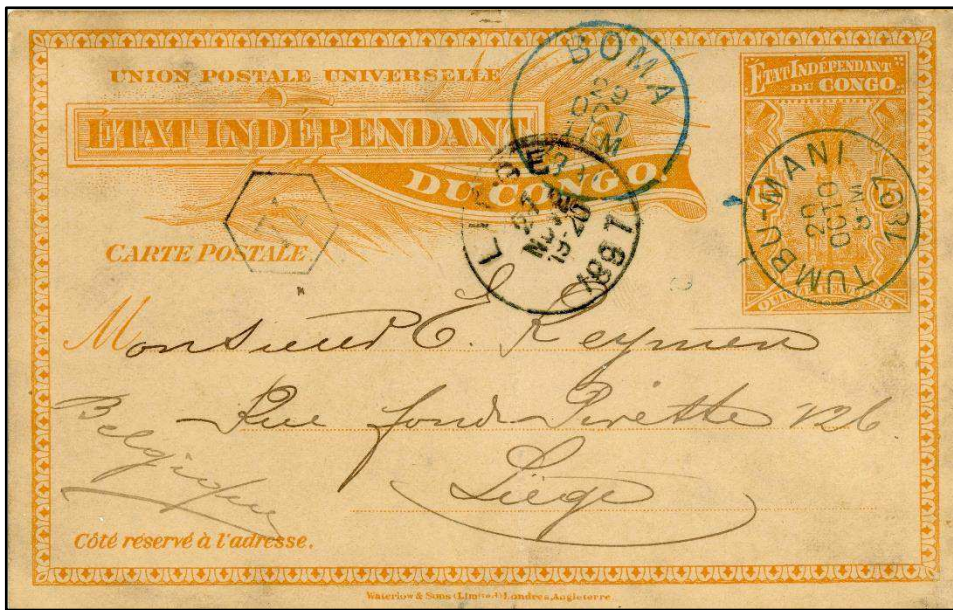 UNION POSTALE UNIVERSELLE
ÉTAT INDÉPENDANT
DU CONGO.
CARTE POSTALE
ÉTAT INDÉPENDANT
DU CONGO.
15
15
BOMA
OCT
TUMBU-MANI
20
OCTO
1897
LIEGE
NOV
19-20
1897
Monsieur E. Keymeu
Rue fond Pirette 126
Belgique
Liège
Côté réservé à l'adresse.
Waterlow & Sons (Limited) Londres, Angleterre.